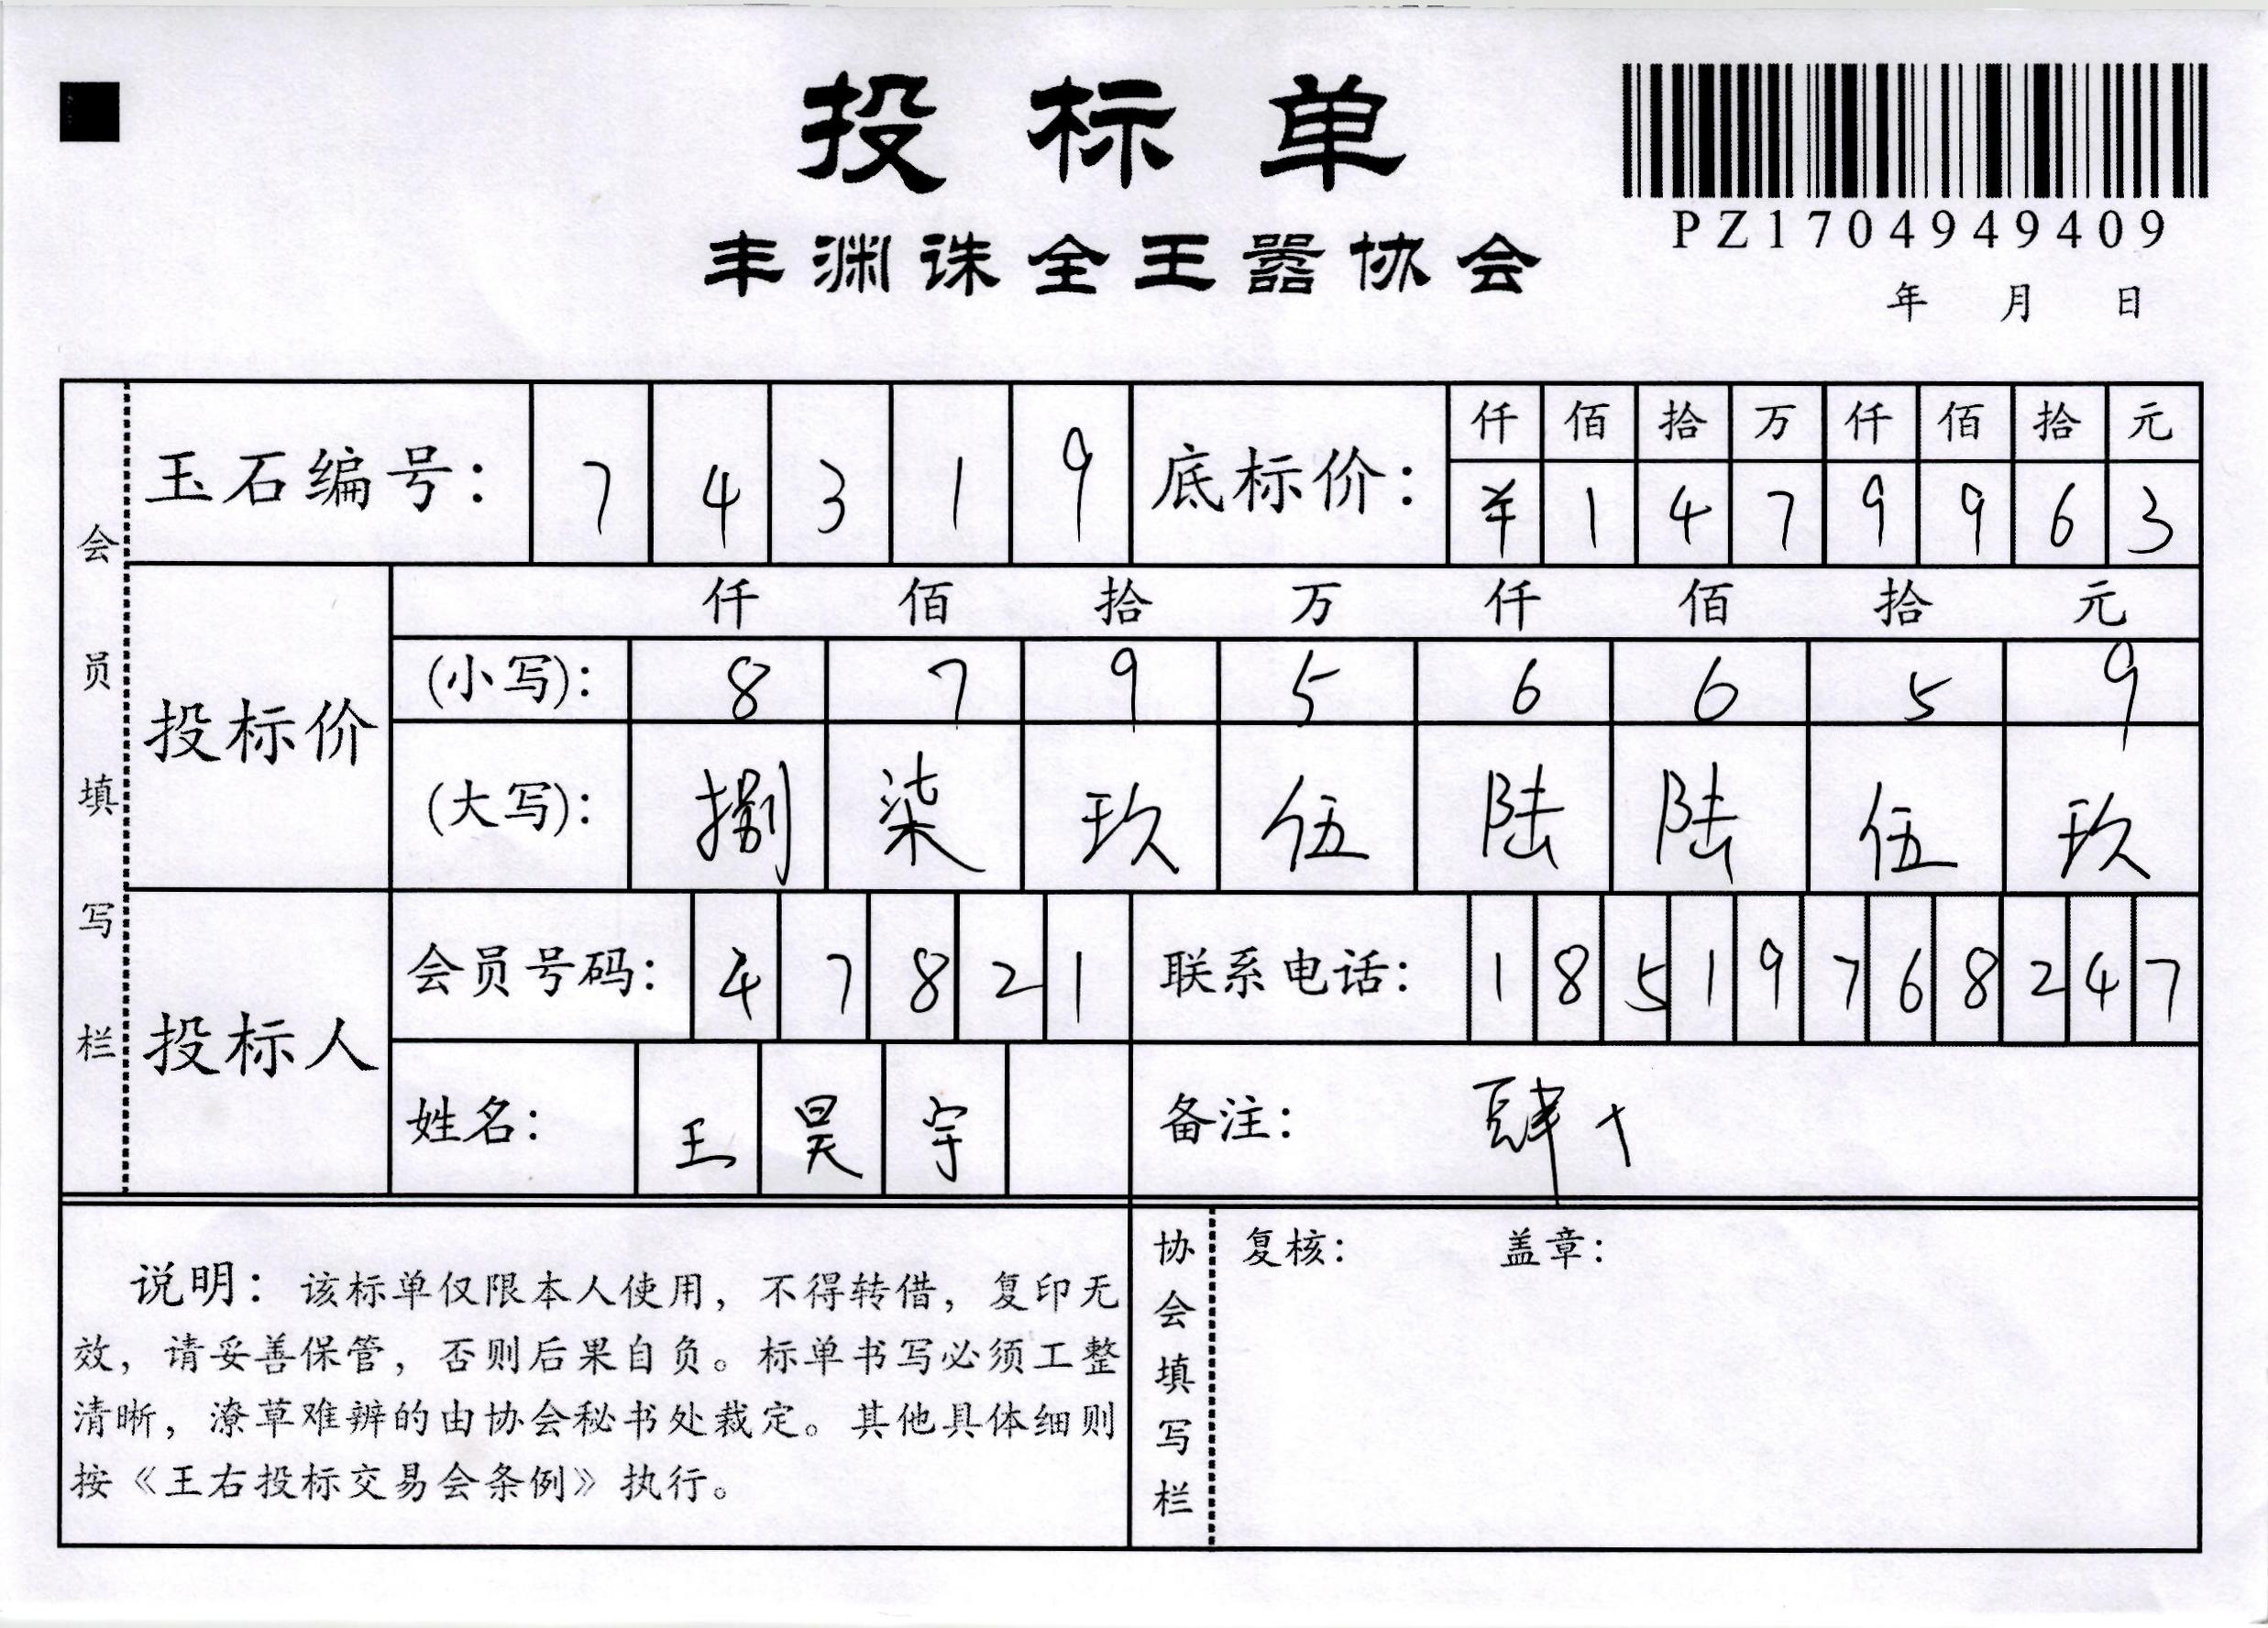 投标单
丰渊诛全王嚣协会
PZ1704949409
年 月 日
会员填写栏
玉石编号: 7 4 3 1 9
底标价: 仟 佰 拾 万 仟 佰 拾 元
¥ 1 4 7 9 9 6 3
投标价
仟 佰 拾 万 仟 佰 拾 元
(小写): 8 7 9 5 6 6 5 9
(大写): 捌 柒 玖 伍 陆 陆 伍 玖
投标人
会员号码: 4 7 8 2 1
联系电话: 1 8 5 1 9 7 6 8 2 4 7
姓名: 王 昊 宇
备注: 肆个
说明: 该标单仅限本人使用, 不得转借, 复印无
效, 请妥善保管, 否则后果自负。标单书写必须工整
清晰, 潦草难辨的由协会秘书处裁定。其他具体细则
按《王右投标交易会条例》执行。
协会填写栏
复核: 盖章: